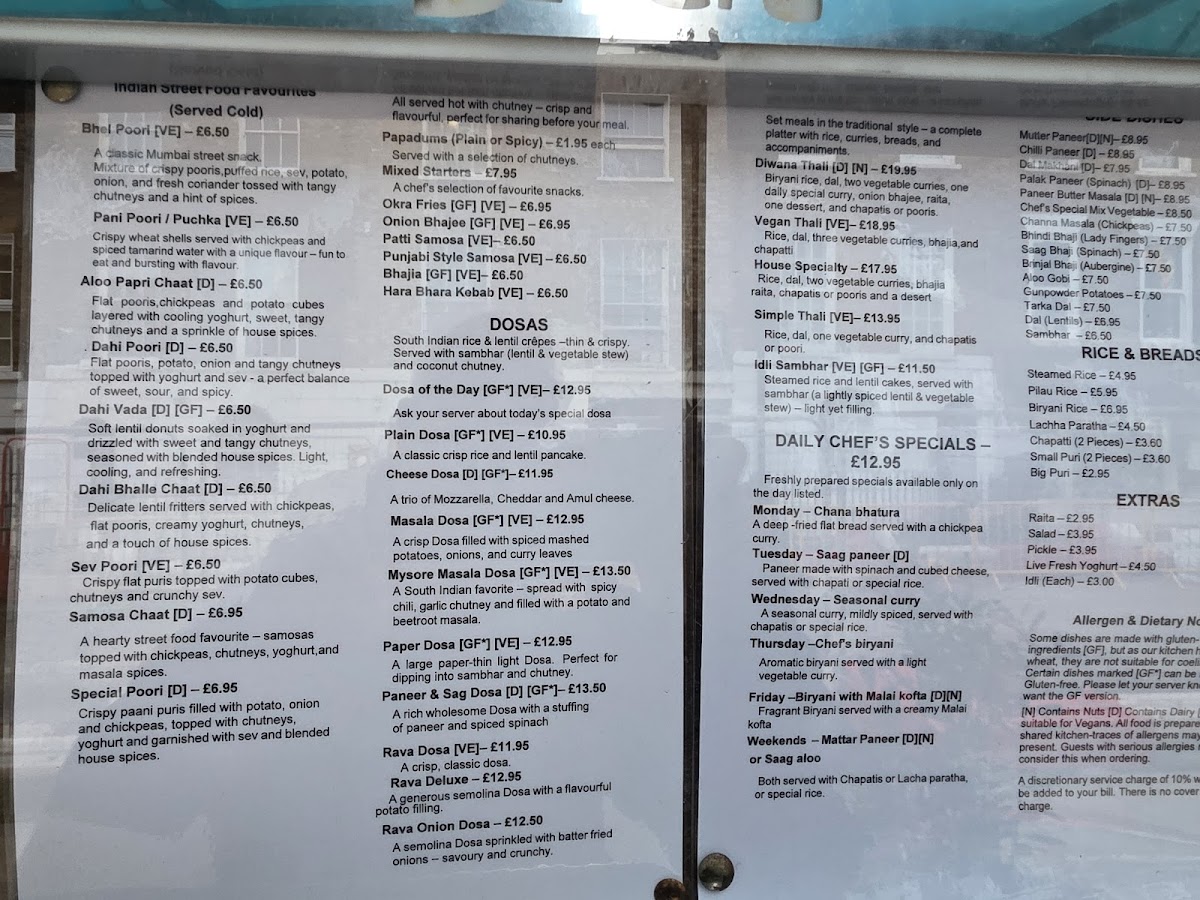 Indian Street Food Favourites
(Served Cold)
Bhel Poori [VE] – £6.50
A classic Mumbai street snack.
Mixture of crispy pooris,puffed rice, sev, potato,
onion, and fresh coriander tossed with tangy
chutneys and a hint of spices.
Pani Poori / Puchka [VE] – £6.50
Crispy wheat shells served with chickpeas and
spiced tamarind water with a unique flavour – fun to
eat and bursting with flavour.
Aloo Papri Chaat [D] – £6.50
Flat pooris,chickpeas and potato cubes
layered with cooling yoghurt, sweet, tangy
chutneys and a sprinkle of house spices.
. Dahi Poori [D] – £6.50
Flat pooris, potato, onion and tangy chutneys
topped with yoghurt and sev - a perfect balance
of sweet, sour, and spicy.
Dahi Vada [D] [GF] – £6.50
Soft lentil donuts soaked in yoghurt and
drizzled with sweet and tangy chutneys,
seasoned with blended house spices. Light,
cooling, and refreshing.
Dahi Bhalle Chaat [D] – £6.50
Delicate lentil fritters served with chickpeas,
flat pooris, creamy yoghurt, chutneys,
and a touch of house spices.
Sev Poori [VE] – £6.50
Crispy flat puris topped with potato cubes,
chutneys and crunchy sev.
Samosa Chaat [D] – £6.95
A hearty street food favourite – samosas
topped with chickpeas, chutneys, yoghurt,and
masala spices.
Special Poori [D] – £6.95
Crispy paani puris filled with potato, onion
and chickpeas, topped with chutneys,
yoghurt and garnished with sev and blended
house spices.
All served hot with chutney – crisp and
flavourful, perfect for sharing before your meal.
Papadums (Plain or Spicy) – £1.95 each
Served with a selection of chutneys.
Mixed Starters – £7.95
A chef's selection of favourite snacks.
Okra Fries [GF] [VE] – £6.95
Onion Bhajee [GF] [VE] – £6.95
Patti Samosa [VE]– £6.50
Punjabi Style Samosa [VE] – £6.50
Bhajia [GF] [VE]– £6.50
Hara Bhara Kebab [VE] – £6.50
DOSAS
South Indian rice & lentil crêpes –thin & crispy.
Served with sambhar (lentil & vegetable stew)
and coconut chutney.
Dosa of the Day [GF*] [VE]– £12.95
Ask your server about today's special dosa
Plain Dosa [GF*] [VE] – £10.95
A classic crisp rice and lentil pancake.
Cheese Dosa [D] [GF*]– £11.95
A trio of Mozzarella, Cheddar and Amul cheese.
Masala Dosa [GF*] [VE] – £12.95
A crisp Dosa filled with spiced mashed
potatoes, onions, and curry leaves
Mysore Masala Dosa [GF*] [VE] – £13.50
A South Indian favorite – spread with spicy
chili, garlic chutney and filled with a potato and
beetroot masala.
Paper Dosa [GF*] [VE] – £12.95
A large paper-thin light Dosa. Perfect for
dipping into sambhar and chutney.
Paneer & Sag Dosa [D] [GF*]– £13.50
A rich wholesome Dosa with a stuffing
of paneer and spiced spinach
Rava Dosa [VE]– £11.95
A crisp, classic dosa.
Rava Deluxe – £12.95
A generous semolina Dosa with a flavourful
potato filling.
Rava Onion Dosa – £12.50
A semolina Dosa sprinkled with batter fried
onions – savoury and crunchy.
Set meals in the traditional style – a complete
platter with rice, curries, breads, and
accompaniments.
Diwana Thali [D] [N] – £19.95
Biryani rice, dal, two vegetable curries, one
daily special curry, onion bhajee, raita,
one dessert, and chapatis or pooris.
Vegan Thali [VE]– £18.95
Rice, dal, three vegetable curries, bhajia,and
chapatti
House Specialty – £17.95
Rice, dal, two vegetable curries, bhajia
raita, chapatis or pooris and a desert
Simple Thali [VE]– £13.95
Rice, dal, one vegetable curry, and chapatis
or poori.
Idli Sambhar [VE] [GF] – £11.50
Steamed rice and lentil cakes, served with
sambhar (a lightly spiced lentil & vegetable
stew) – light yet filling.
DAILY CHEF'S SPECIALS –
£12.95
Freshly prepared specials available only on
the day listed.
Monday – Chana bhatura
A deep -fried flat bread served with a chickpea
curry.
Tuesday – Saag paneer [D]
Paneer made with spinach and cubed cheese,
served with chapati or special rice.
Wednesday – Seasonal curry
A seasonal curry, mildly spiced, served with
chapatis or special rice.
Thursday –Chef's biryani
Aromatic biryani served with a light
vegetable curry.
Friday –Biryani with Malai kofta [D][N]
Fragrant Biryani served with a creamy Malai
kofta
Weekends – Mattar Paneer [D][N]
or Saag aloo
Both served with Chapatis or Lacha paratha,
or special rice.
SIDE DISHES
Mutter Paneer[D][N]– £8.95
Chilli Paneer [D] – £8.95
Dal Makhani [D]– £7.95
Palak Paneer (Spinach) [D]– £8.95
Paneer Butter Masala [D] [N]– £8.95
Chef's Special Mix Vegetable – £8.50
Channa Masala (Chickpeas) – £7.50
Bhindi Bhaji (Lady Fingers) – £7.50
Saag Bhaji (Spinach) – £7.50
Brinjal Bhaji (Aubergine) – £7.50
Aloo Gobi – £7.50
Gunpowder Potatoes – £7.50
Tarka Dal – £7.50
Dal (Lentils) – £6.95
Sambhar – £6.50
RICE & BREADS
Steamed Rice – £4.95
Pilau Rice – £5.95
Biryani Rice – £6.95
Lachha Paratha – £4.50
Chapatti (2 Pieces) – £3.60
Small Puri (2 Pieces) – £3.60
Big Puri – £2.95
EXTRAS
Raita – £2.95
Salad – £3.95
Pickle – £3.95
Live Fresh Yoghurt – £4.50
Idli (Each) – £3.00
Allergen & Dietary
Some dishes are made with gluten-
ingredients [GF], but as our kitchen
wheat, they are not suitable for
Certain dishes marked [GF*] can be
Gluten-free. Please let your server
want the GF version.
[N] Contains Nuts [D] Contains Dairy
suitable for Vegans. All food is
shared kitchen-traces of allergens may
present. Guests with serious allergies
consider this when ordering.
A discretionary service charge of 10%
be added to your bill. There is no cover
charge.